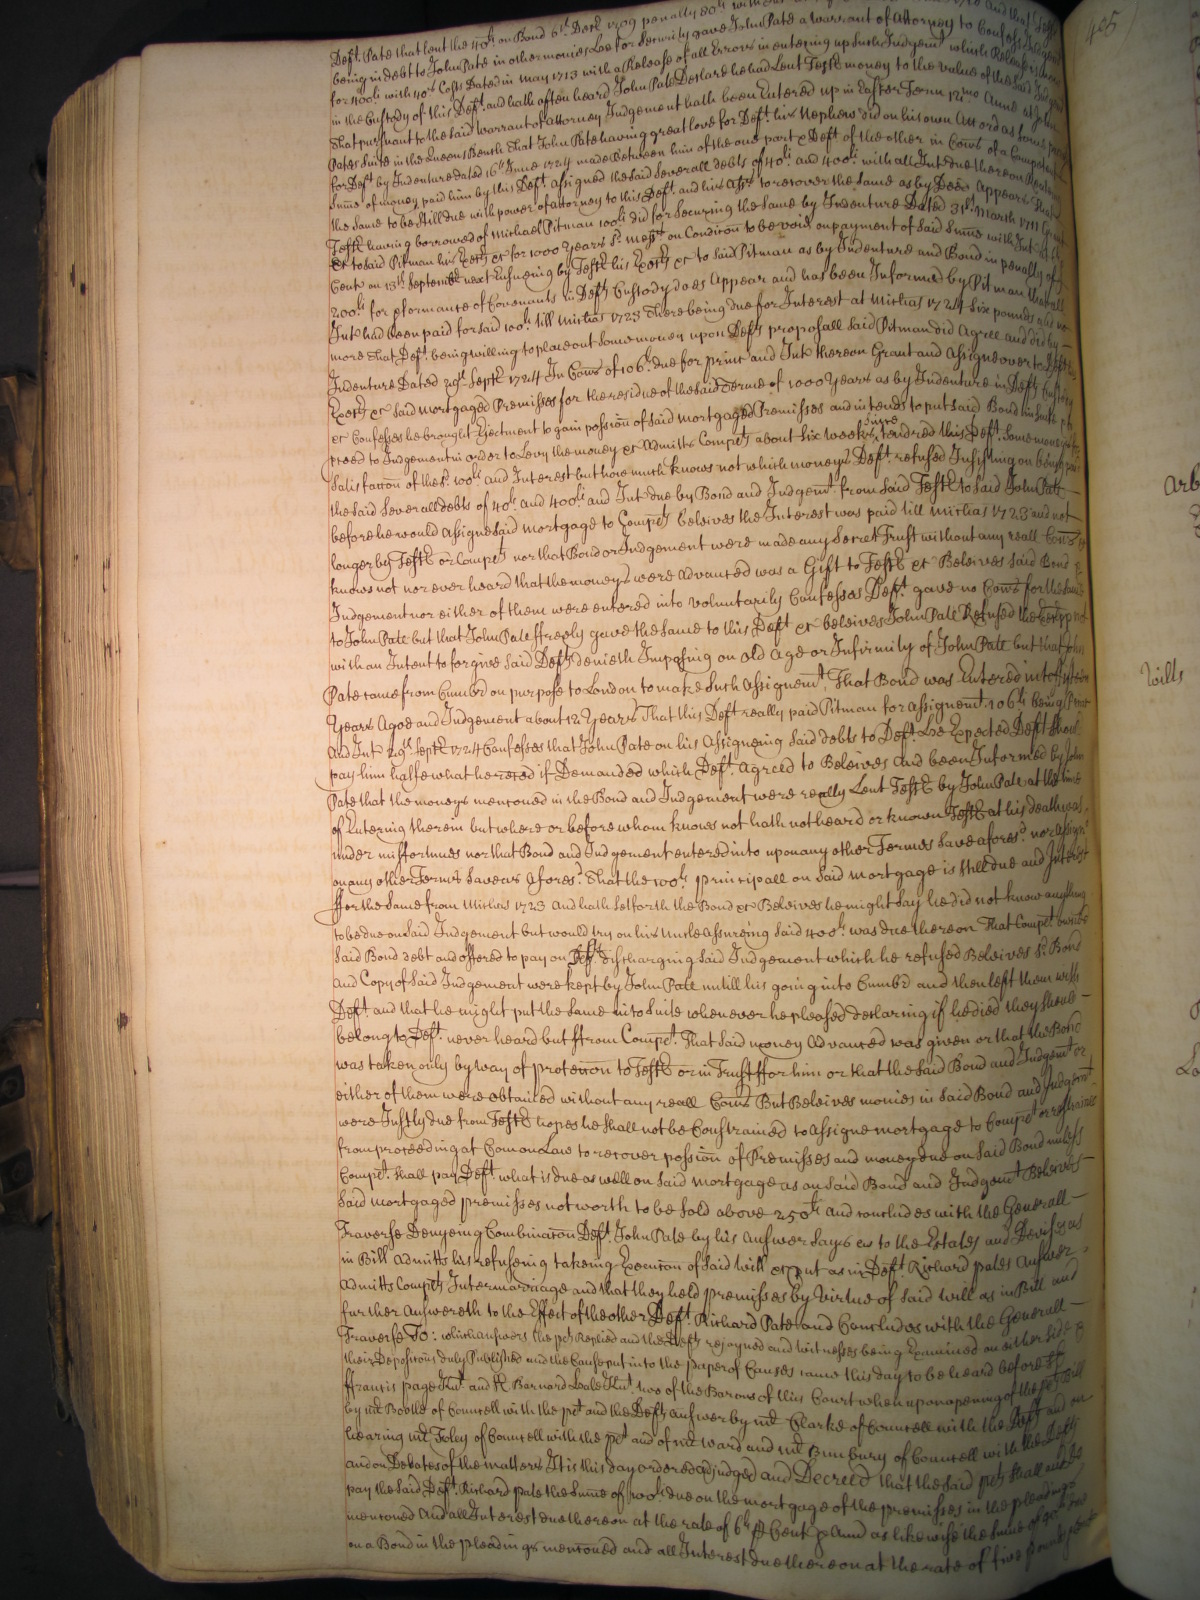 Deft. Pate that lent the 40li on Bond 6th Decr 1709 penalty 80li with
being in debt to John Pate in other monies Lee for Security gave John Pate a warrant of Attorney to Confess Judgemt
for 800li with 40s Costs Dated in May 1713 with a Release of all Errors in entering up such Judgemt which Release is now
in the Custody of this Deft. and hath often heard John Pate Declare he had Lent Testr money to the value of the said Judgmt
That pursuant to the said warrant of Attorney Judgement hath been Entered up in Easter Terme 12mo Anne at John
Pates suite in the Queens Bench That John Pate having great love for Deft. his Nephew did on his own Accord as some
for Deft. by Indenture dated 16th June 1724 made Between him of the one part & Deft. of the other in Cons of a Competent
Sume of money paid him by this Deft. assigned the said severall debts of 40li and 400li with all Int due thereon
the same to be still due with power of attorney to this Deft. and his Assrs to recover the same as by Deed Appears That
Testr having borrowed of Michael Pitman 100li did for Securing the same by Indenture Dated 31st March 1711 Grant
&c to said Pitman his Exers &c for 1000 Years sd messe on Condicon to be void on payment of said Sume with Int at 6li
Cent on 13th September next Ensueing by Testr his Exers &c to said Pitman as by Indenture and Bond in penalty of
200li for pformance of Covenants in Defts Custody does Appear and has been Informed by Pitman that all
Int had been paid for said 100li till Michas 1723 There being due for Interest at Michas 1724 six pounds & no
more That Deft. being willing to place out some money upon Defts proposall said Pitman did Agree and did by
Indenture Dated 29th Septr 1724 In Cons of 106li due for princ and Int thereon Grant and Assigne over to Deft. his
Exers &c said mortgaged Premisses for the residue of the said Terme of 1000 Years as by Indenture in Defts Custody
&c Confesses he brought Ejectment to gain possion of said mortgaged Premisses and intends to put said Bond in suite & to
proceed to Judgement in order to Levy the money &c Admitts Complts about six weeks since tendred this Deft. some money in
Satisfaccon of the sd 100li and Interest but how much knows not which moneys Deft. refused Insisting on being paid
the said severall debts of 40li and 400li and Int due by Bond and Judgemt from said Testr to said John Pate
before he would Assigne said mortgage to Complts beleives the Interest was paid till Michas 1723 and not
longer by Testr or Complts nor that Bond or Judgement were made any secret Trust without any reall Cons
knows not nor ever heard that the moneys were Advanced was a Gift to Testr &c Beleives said Bond &
Judgement nor either of them were entered into voluntarily Confesses Deft. gave no Cons for the same
to John Pate but that John Pate ffreely gave the same to this Deft &c beleives John Pate Refused the
with an Intent to forgive said Debts denieth Imposing on old Age or Infirmity of John Pate but that John
Pate came from Cumbd on purpose to London to make such Assignemt, That Bond was Entered into
Years Agoe and Judgement about 12 Years That this Deft really paid Pitman for Assignemt 106li being Princ
And Int 29th Septr 1724 Confesses that John Pate on his Assigneing said debts to Deft. Lre Expected Deft should
pay him halfe what he reced if Demanded which Deft. agreed to Beleives and been Informed by John
Pate that the moneys menconed in the Bond and Judgement were really Lent Testr by John Pate at the time
of Entering therein but where or before whom knows not hath not heard or known Testr at his death was
under missfortunes nor that Bond and Judgement entered into upon any other Termes save aforesd nor Assignd
on any other Termes save as Aforesd That the 100li principall on said mortgage is still due and Interest
ffor the same from Michas 1723 and hath set forth the Bond &c Beleives he might say he did not know anything
to be due on said Judgement but would try on his Uncle Assureing said 400li was due thereon That Complt owned
said Bond debt and offered to pay on Deft. discharging said Judgement which he refused Beleives sd Bond
and Copy of said Judgement were kept by John Pate untill his going into Cumbd and then left them with
Deft and that he might put the same into Suite whenever he pleased declaring if he died they should
belong to Deft. never heard but ffrom Complt. That said money Advanced was given or that the Bond
was taken only by way of protecion to Testr or in Trust ffor him or that the said Bond and Judgemt or
either of them were obtained without any reall Cons But Beleives monies in said Bond and Judgemt
were Justly due from Testr hopes he shall not be Constrained to Assigne mortgage to Complt or restrained
from proceeding at Comon Law to recover possion of Premisses and money due on said Bond unless
Complt. shall pay Deft. what is due as well on said mortgage as on said Bond and Judgemt Beleives
said mortgaged premisses not worth to be sold above 250li and concludes with the Generall
Traverse Denyeing Combinacon Deft. John Pate by his Answer Says as to the Estates and Devises as
in Bill Admitts his refuseing takeing Execucon of said will &c put as in Deft. Richard pates Answer
Admitts Complts Intermarriage and that they held premisses by Virtue of said will as in Bill and
further Answereth to the Effect of the other Deft. Richard Pate and Concludes with the Generall
Traverse To: which answers the plts Replied and the Defts rejoyned and witnesses being Examined on either side &
their Deposicons duly Published and the Cause put into the paper of Causes came this day to be heard before Sr
ffrancis page Knt. and Sr Barnard Leale Knt. two of the Barons of this Court when upon opening of the plts Bill
by Mr Bootle of Councell with the plt and the Defts answer by Mr Clarke of Councell with the Deft and on
hearing Mr Foley of Councell with the plt and of Mr Ward and Mr Bunbury of Councell with the Defts
and on Debates of the matters It is this day ordered adjudged and Decreed that the said plts shall and do
pay the said Deft. Richard pate the Sume of 100li due on the mortgage of the premisses in the pleadings
menconed And all Interest due thereon at the rate of 6li p Cent p Ann as likewise the Sume of 40li due
on a Bond in the pleadings menconed and all Interest due thereon at the rate of five pounds p Cent
405
Arb
Wills